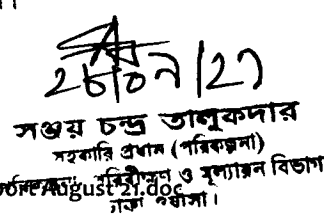 ২৮/০৭/২১
সঞ্জয় চন্দ্র তালুকদার
সহকারি প্রধান (পরিকল্পনা)
পরিবীক্ষণ ও মূল্যায়ন বিভাগ
August 21.doc
ঢাকা ওয়াসা।